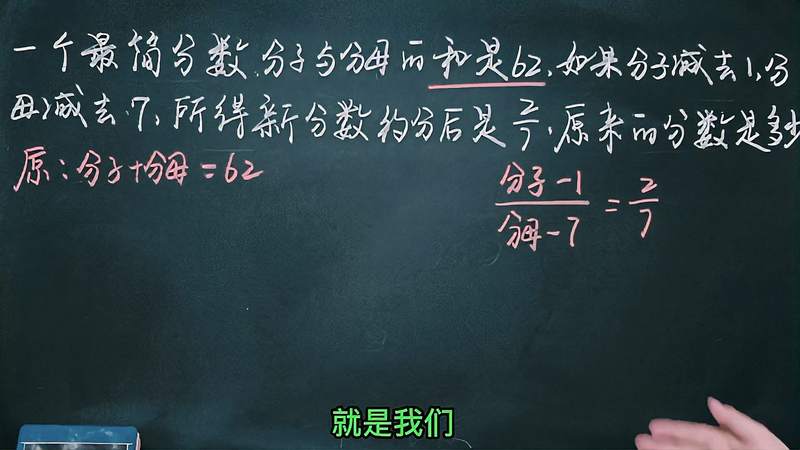 一个最简分数,分子与分母的和是62,如果分子减去1,分
母减去7,所得新分数约分后是2/7,原来的分数是多少
原:分子+分母=62
分子-1/分母-7=2/7
就是我们